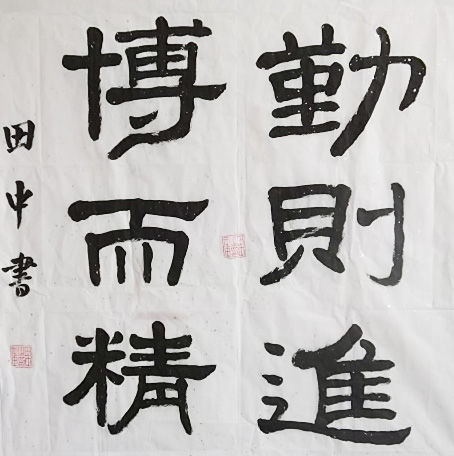 勤則進
博而精
田中書